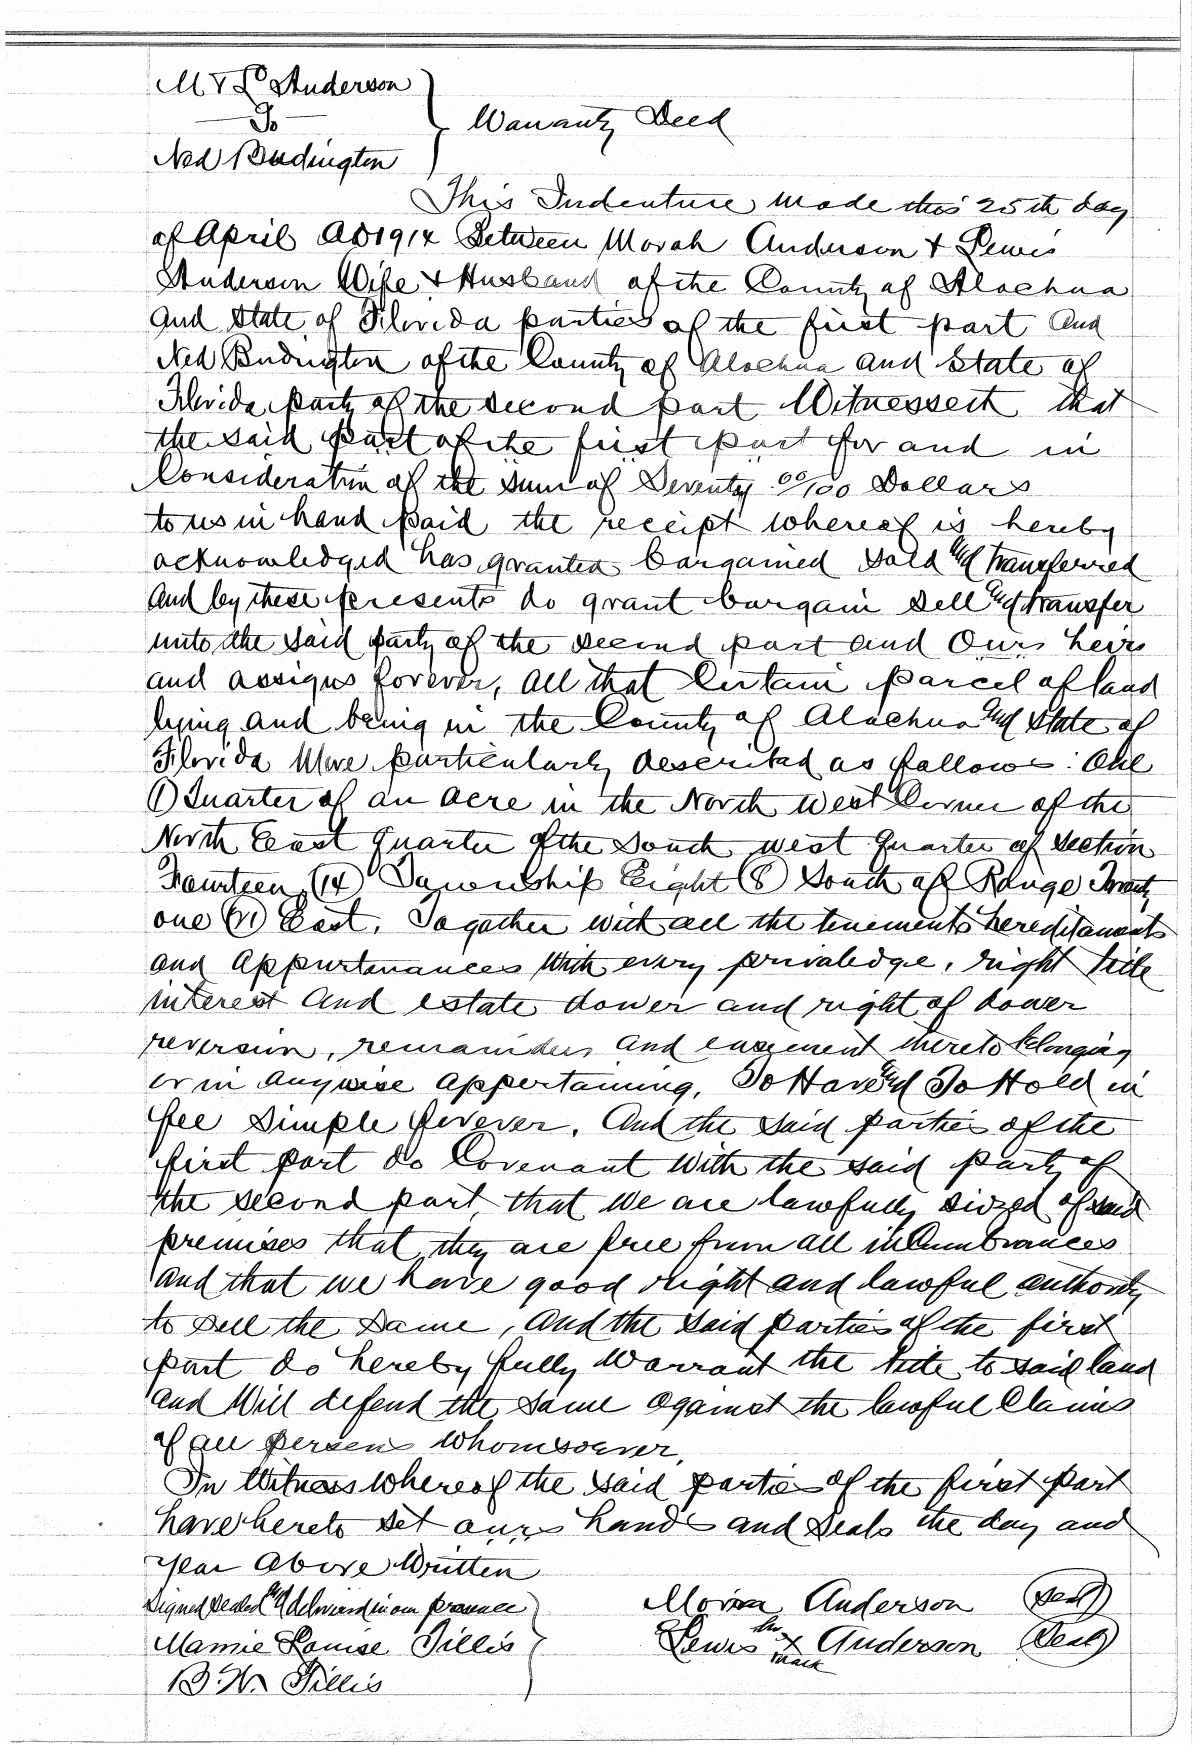 M & L Anderson
To
Warranty Deed
Ned Budington
This Indenture made this 25th day
of April AD 1914 Between Morah Anderson & Lewis
Anderson Wife & Husband of the County of Alachua
and State of Florida parties of the first part and
Ned Budington of the County of Alachua and State of
Florida party of the second part Witnesseth that
the said part of the first part for and in
Consideration of the sum of Seventy 00/100 Dollars
to us in hand paid the receipt whereof is hereby
acknowledged has granted bargained sold and transferred
and by these presents do grant bargain sell and transfer
unto the said party of the second part and Ours heirs
and assigns forever, all that Certain parcel of land
lying and being in the County of Alachua and State of
Florida More particularly described as follows: One
(1) Quarter of an acre in the North west Corner of the
North East quarter of the South west quarter of section
Fourteen (14) Township Eight (8) South of Range Twenty
one (21) East. Together with all the tenements hereditaments
and appurtenances with every priviledge, right title
interest and estate dower and right of dower
reversion, remainder and easement thereto belonging
or in anywise appertaining, To Have and To Hold in
fee simple forever. And the said parties of the
first part do Covenant with the said party of
the second part, that we are lawfully siezed of said
premises that they are free from all inCumbrances
and that we have good right and lawful authority
to sell the same, and the said parties of the first
part do hereby fully warrant the title to said land
and Will defend the same against the lawful Claims
of all persons whomsoever.
In Witness Whereof the said parties of the first part
have hereto set ours hands and seals the day and
year above Written
Signed Sealed and delivered in our presence
Anderson (Seal)
Mamie Louise Tillis
Lewis his X mark Anderson (Seal)
B. W. Tillis